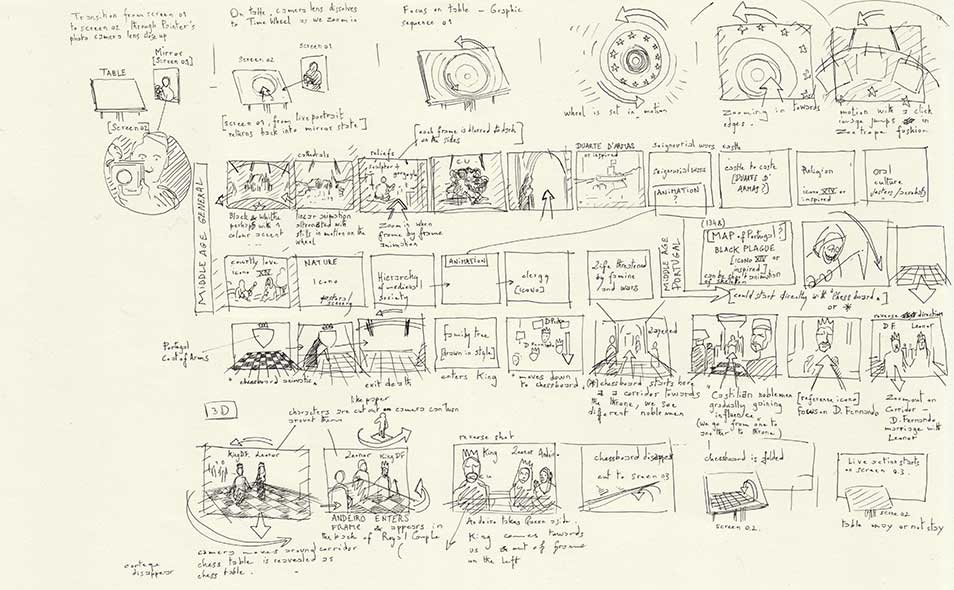 Transition from screen 01
to screen 02 through Painter's
photo camera lens
On table, camera lens dissolves
to Time Wheel as we zoom in
Focus on table - Graphic
sequence 01
Mirror
[Screen 01]
TABLE
[Screen 02]
screen 02
screen 01
[screen 01, from live portrait
returns back into mirror state]
wheel is set in motion
Zooming in towards
edges.
motion with a click
image jumps in
Zootrope fashion
[each frame is blurred
on the sides
MIDDLE AGE GENERAL
cathedrals
reliefs
sculptor +
gargoyle
C.U.
DUARTE D'ARMAS
or inspired
Seigneurial wars
castle
Seigneurial wars
ANIMATION
?
castle to castle
[DUARTE D'
ARMAS?]
Religion
icono XIV or
inspired
oral
culture
jesters/acrobats
Black & White
perhaps with a
colour accent
...
linear animation
alternated with
stills in motion on the
wheel
Zoom in when
frame by frame
animation
courtly love
icono XIV
NATURE
Icono
pastoral
scenery
Hierarchy
of medieval
society
ANIMATION
clergy
[ICONO]
Life threatened
by famine
and wars
MIDDLE AGE
PORTUGAL
(1348)
[MAP of Portugal?]
BLACK PLAGUE
[icono XIV or
inspired]
can be short animation
of skeleton
[could start directly with "Chessboard"]
or *
reverse direction
Portugal
Coat of Arms
"chessboard animates"
exit death
family tree
[drawn in style]
enters King
"moves down
to chessboard"
(*) chessboard starts here
as a corridor towards
the throne, we see
different noblemen
" Castilian noblemen
gradually gaining
influence"
(we go from one to
another to throne)
[reference icono]
focus on D. Fernando
D.F. Leonor
Zoom out on
Corridor –
D. Fernando
marriage with
Leonor
3D
like paper
characters are cut out – camera can turn
around them
King DF. Leonor
Leonor King DF
reverse shot
King
C.U
Leonor Andeiro
chessboard disappears
cut to screen 03
chessboard is folded
screen 02.
Live action starts
on screen 03.
screen 02
table may or not stay
ANDEIRO ENTERS
FRAME & appears in
the back of Royal Couple
Andeiro takes Queen aside,
King comes towards
us & out of frame
on the left
camera moves around corridor
chess table is revealed as
chess table.
cortege
disappear